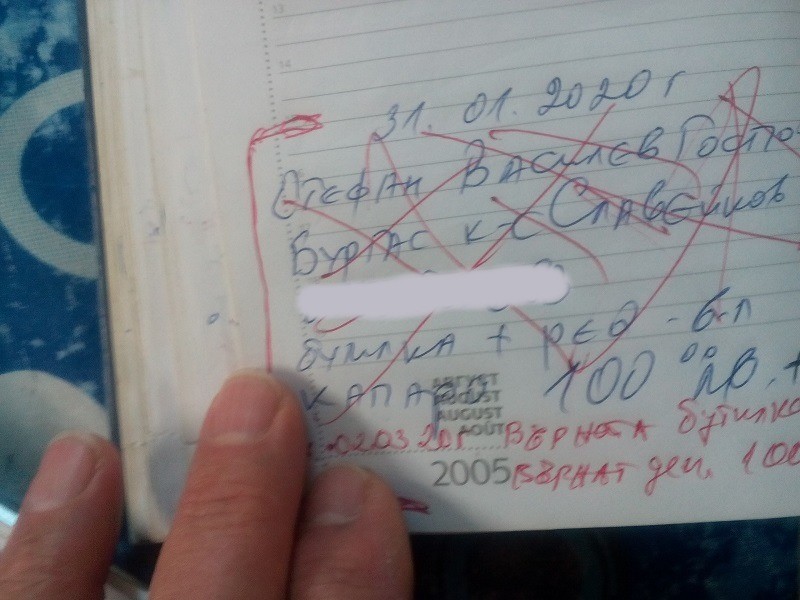 13
14
31. 01. 2020 г
СТЕФАН ВАСИЛЕВ Госпо
БУРГАС К-С СЛАВЕЙКОВ
БУТИЛКА + РЕД - 6-л
КАПАР 100 00 ЛВ. +
АВГУСТ
AUGUST
AUGUST
AOÛT
02.03 20г ВЪРНАТА бутилка
2005 ВЪРНАТ ДЕП. 100